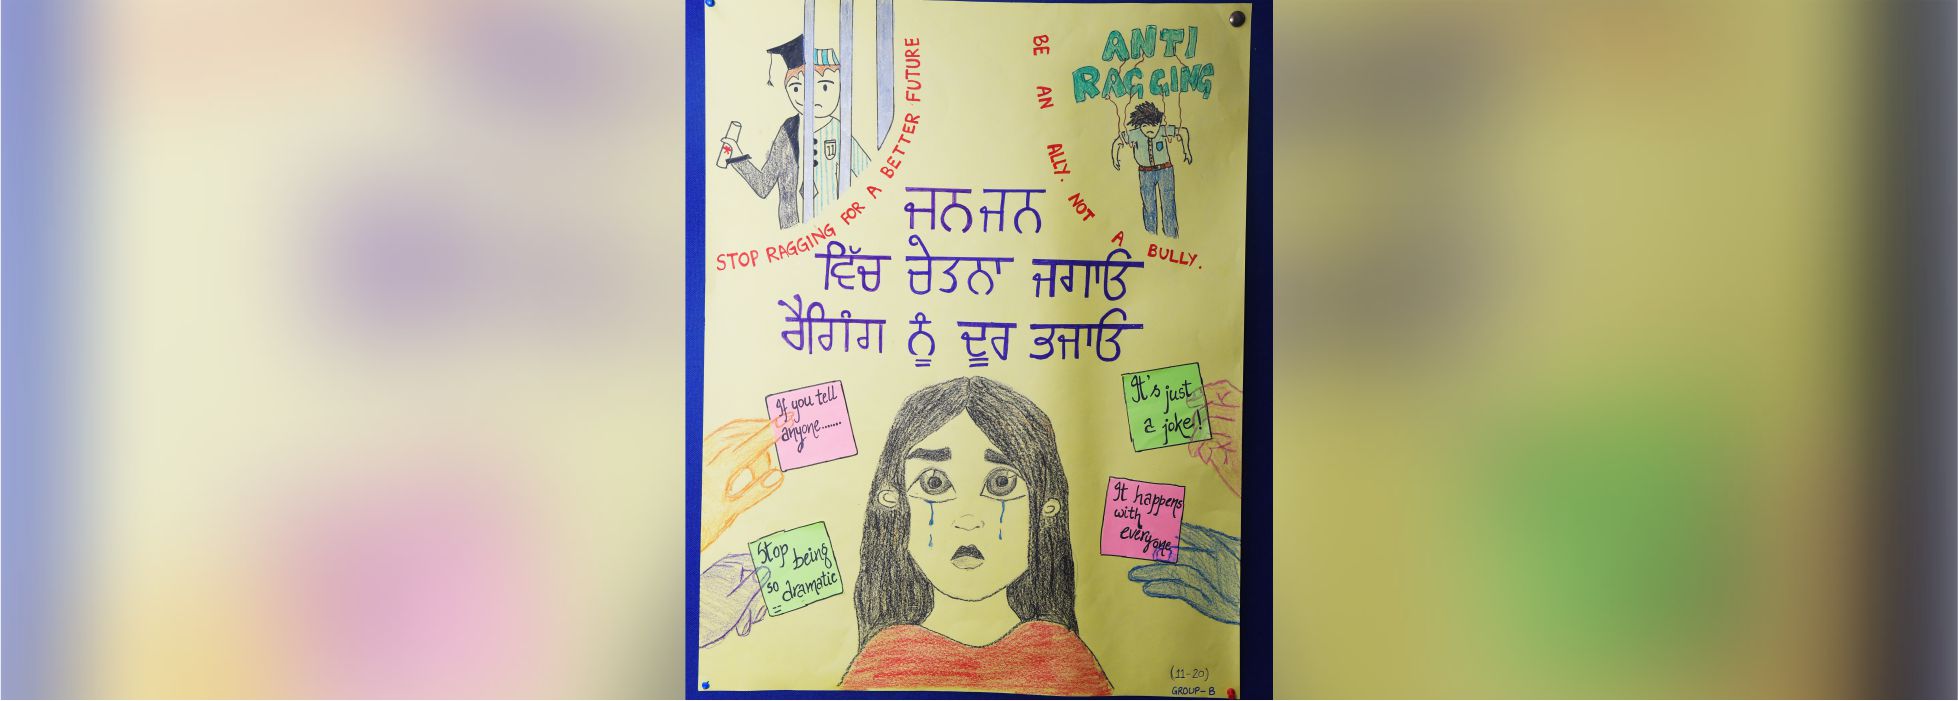 ANTI
RAGGING
STOP RAGGING FOR A BETTER FUTURE
BE AN ALLY. NOT A BULLY.
11
ਜਨ ਜਨ
ਵਿੱਚ ਚੇਤਨਾ ਜਗਾਓ
ਰੈਗਿੰਗ ਨੂੰ ਦੂਰ ਭਜਾਓ
If you tell
anyone.......
It's just
a joke!
Stop being
so dramatic
It happens
with
everyone
(11-20)
GROUP-B